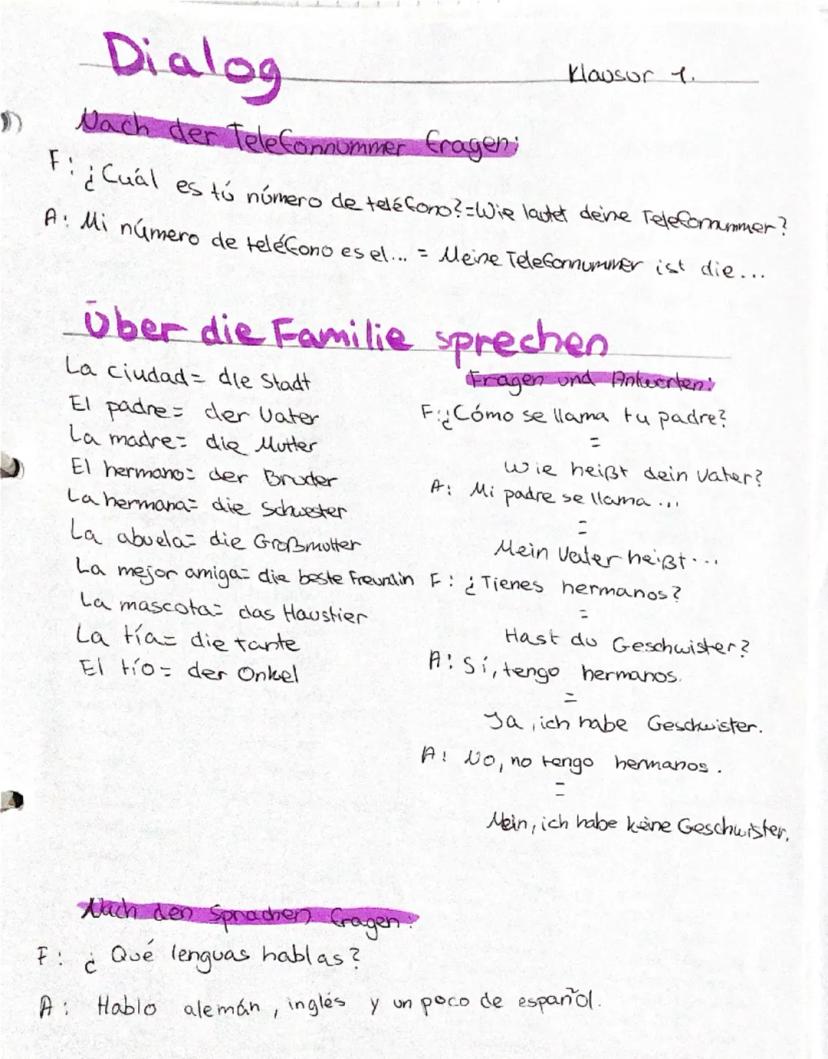 Dialog
Klausur 1.
Nach der Telefonnummer fragen:
F: ¿Cuál es tú número de teléfono?=Wie lautet deine Telefonnummer?
A: Mi número de teléfono es el... = Meine Telefonnummer ist die...
Über die Familie sprechen
La ciudad= die Stadt
El padre= der Vater
La madre= die Mutter
El hermano= der Bruder
La hermana= die Schwester
La abuela= die Großmutter
La mejor amiga= die beste Freundin
La mascota= das Haustier
La tía= die Tante
El tío= der Onkel
Fragen und Antworten:
F:¿Cómo se llama tu padre?
=
Wie heißt dein Vater?
A: Mi padre se llama...
=
Mein Vater heißt...
F: ¿Tienes hermanos?
=
Hast du Geschwister?
A: Sí, tengo hermanos.
=
Ja, ich habe Geschwister.
A: No, no tengo hermanos.
=
Nein, ich habe keine Geschwister.
Nach den Sprachen fragen:
F: ¿Qué lenguas hablas?
A: Hablo alemán, inglés y un poco de español.